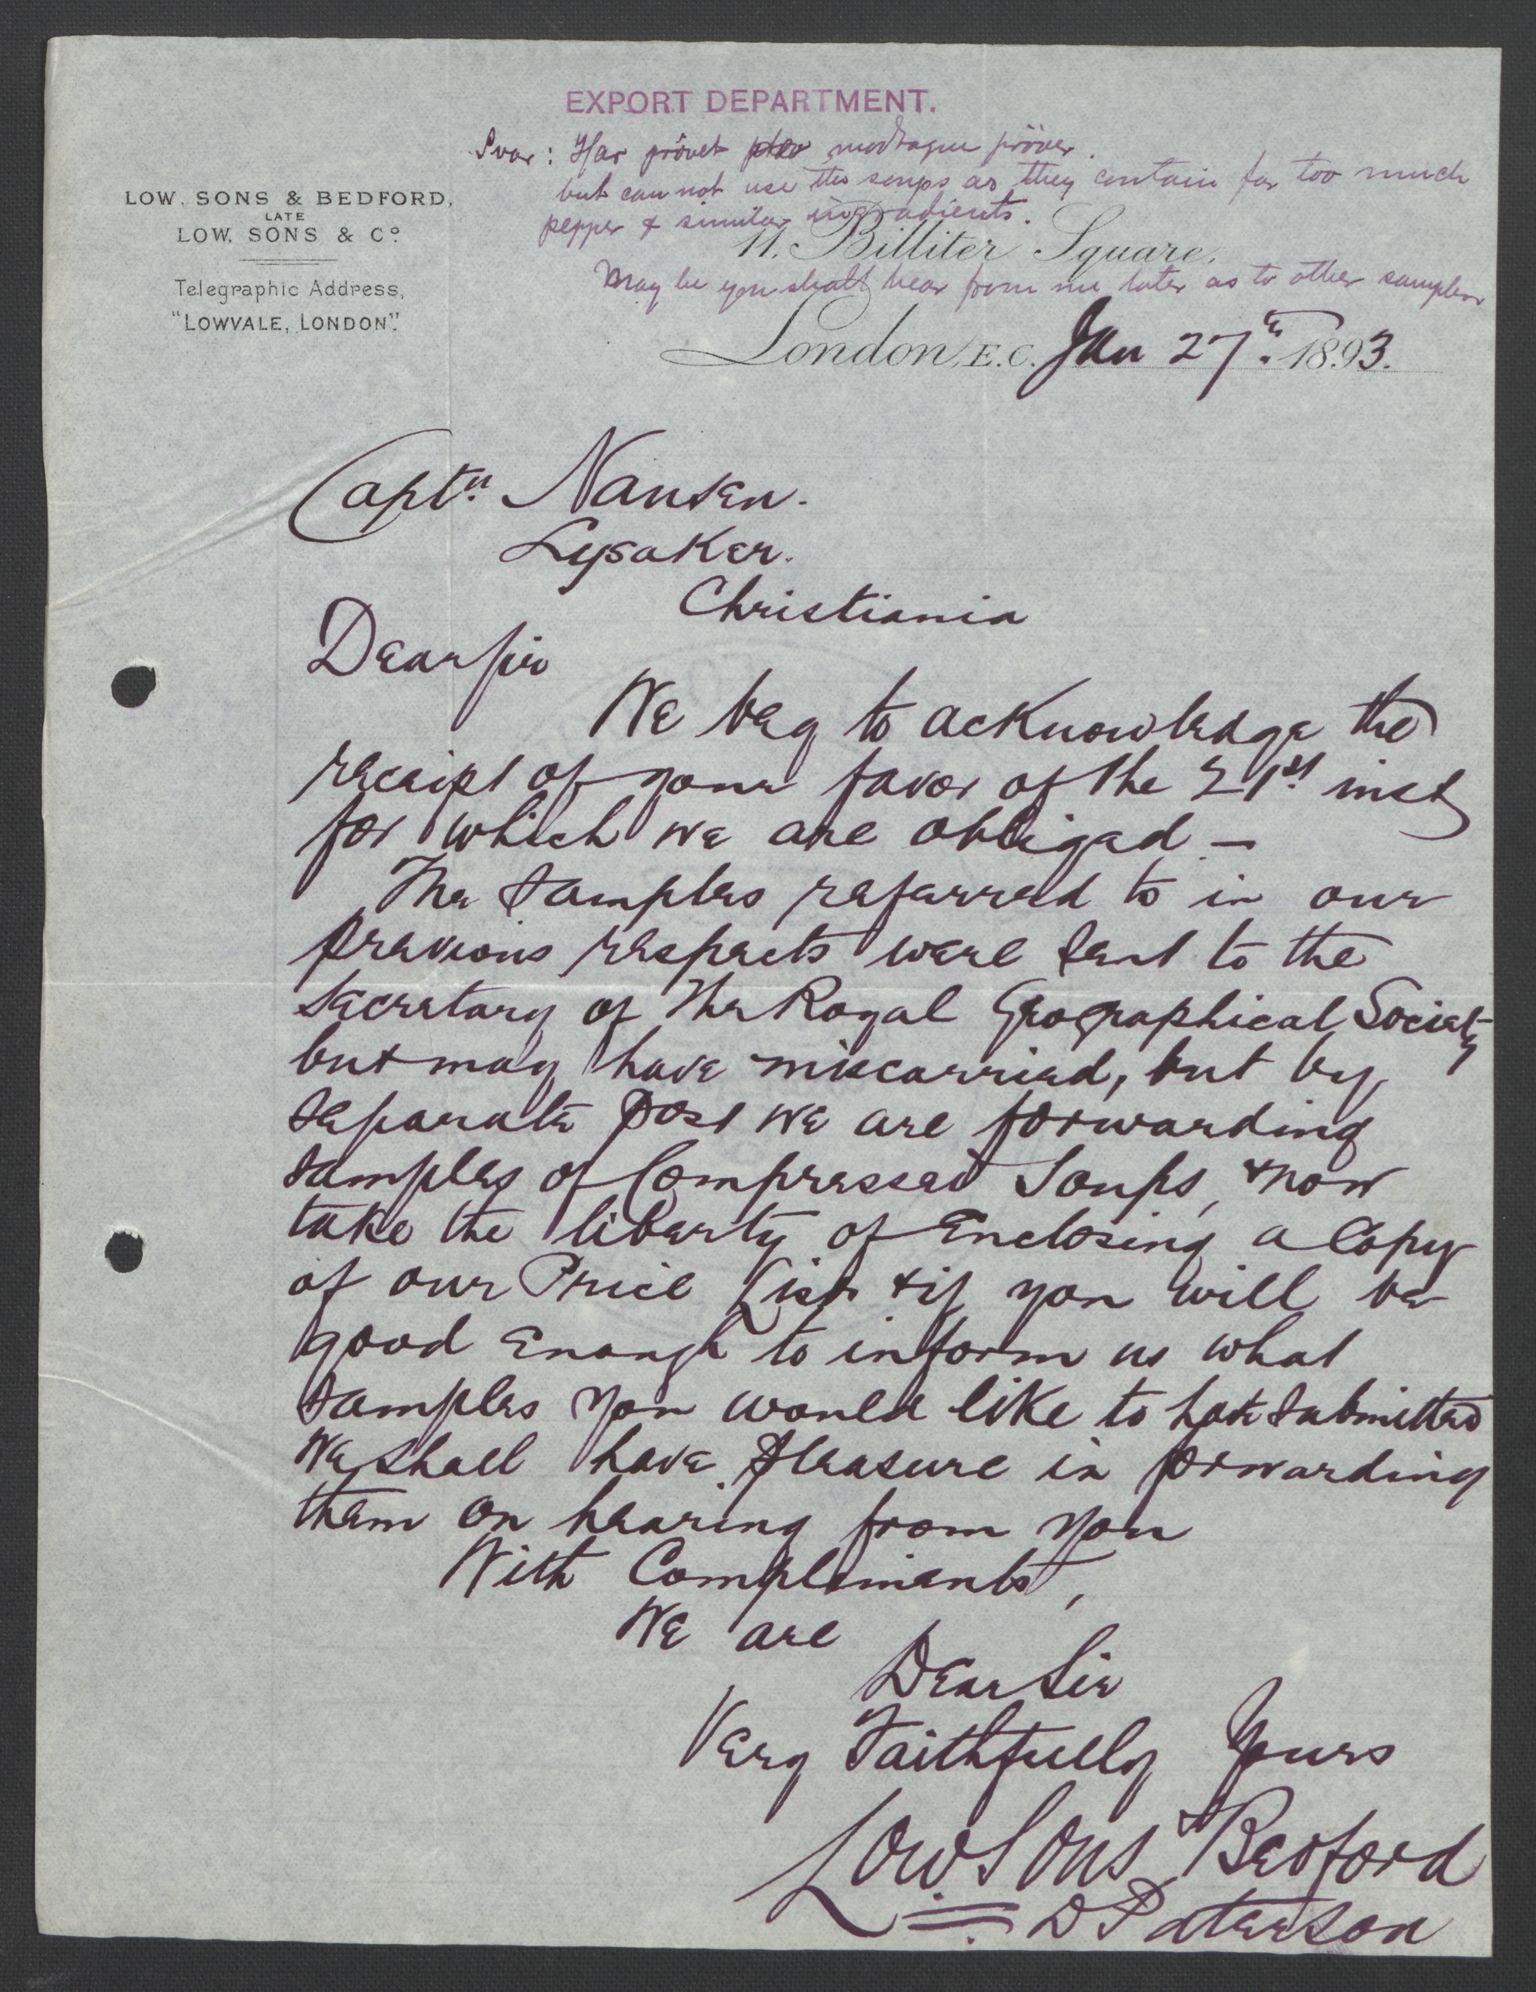 EXPORT DEPARTMENT.
Svar: Har prövet modtagne pröver.
but can not use the soups as they contain far too much
pepper & similar ingradients.
May be you shall hear from me later as to other samples
LOW, SONS & BEDFORD,
LATE
LOW, SONS & Co.
Telegraphic Address,
"LOWVALE, LONDON".
11, Billiter Square,
London, E.C. Jan 27th 1893.
Captn. Nansen.
Lysaker.
Christiania
Dear Sir
We beg to acknowledge the
receipt of your favor of the 21st. inst
for which we are obliged -
The samples referred to in our
previous respects were sent to the
Secretary of The Royal Geographical Society
but may have miscarried, but by
separate post we are forwarding
samples of Compressed Soups, & now
take the liberty of Enclosing a Copy
of our Price List & if you will be
good Enough to inform us what
samples you would like to have submitted
We shall have pleasure in forwarding
them on hearing from you
With Compliments,
We are
Dear Sir
Very Faithfully Yours
Low Sons & Bedford
D Paterson